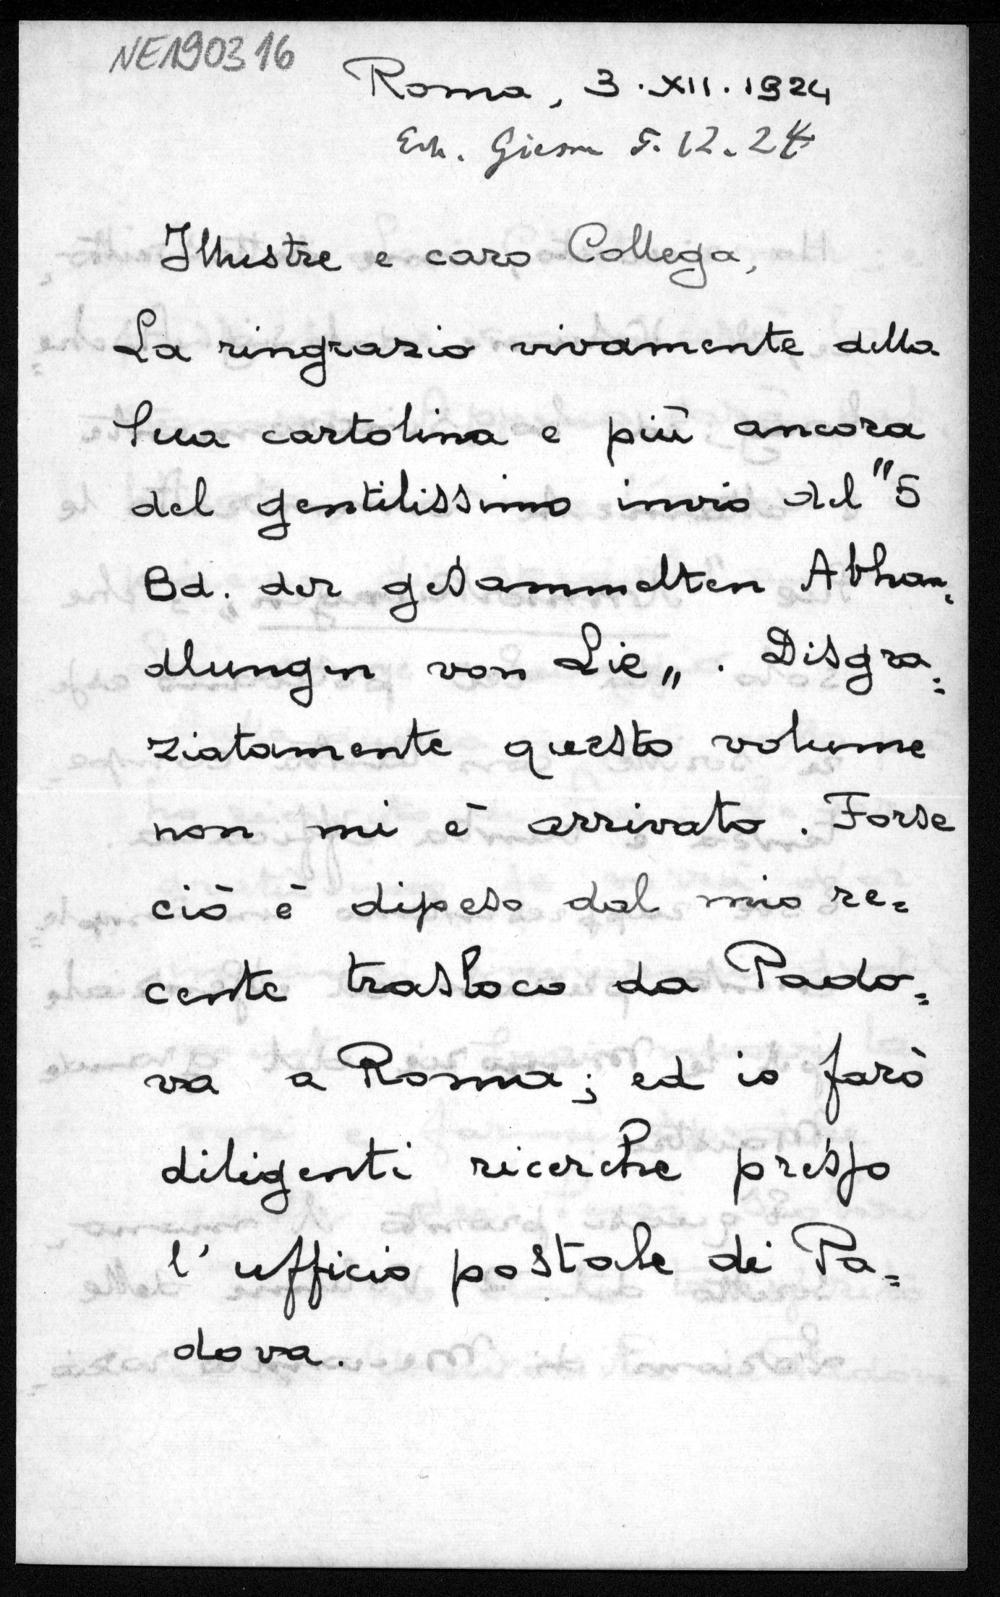 NE190316
Roma, 3.XII.1924
Erh. Giessen 5.12.24
Illustre e caro Collega,
La ringrazio vivamente della
Sua cartolina e più ancora
del gentilissimo invio del "5
Bd. der gesammelten Abhan=
dlungen von Lie„. Disgra=
ziatamente questo volume
non mi è arrivato. Forse
ciò è dipeso dal mio re=
cente trasloco da Pado=
va a Roma; ed io farò
diligenti ricerche presso
l'ufficio postale di Pa=
dova.